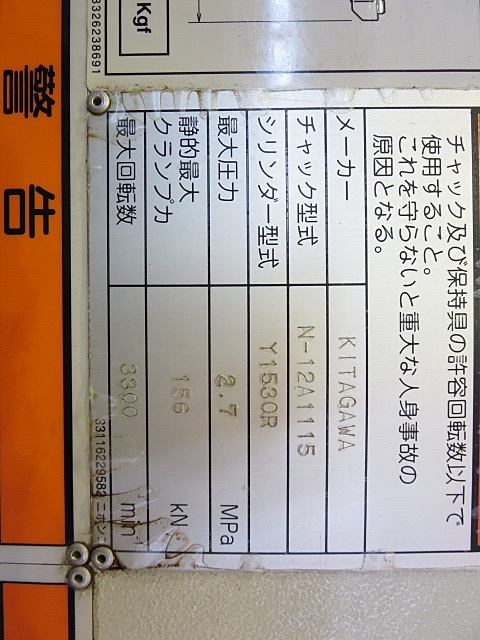 Kgf
3326238691
警告
チャック及び保持具の許容回転数以下で
使用すること。
これを守らないと重大な人身事故の
原因となる。
メーカー KITAGAWA
チャック型式 N-12A1115
シリンダー型式 Y1530R
最大圧力 2.7 MPa
静的最大クランプ力 156 kN
最大回転数 3300 min-1
33116229582 ニホンゴ